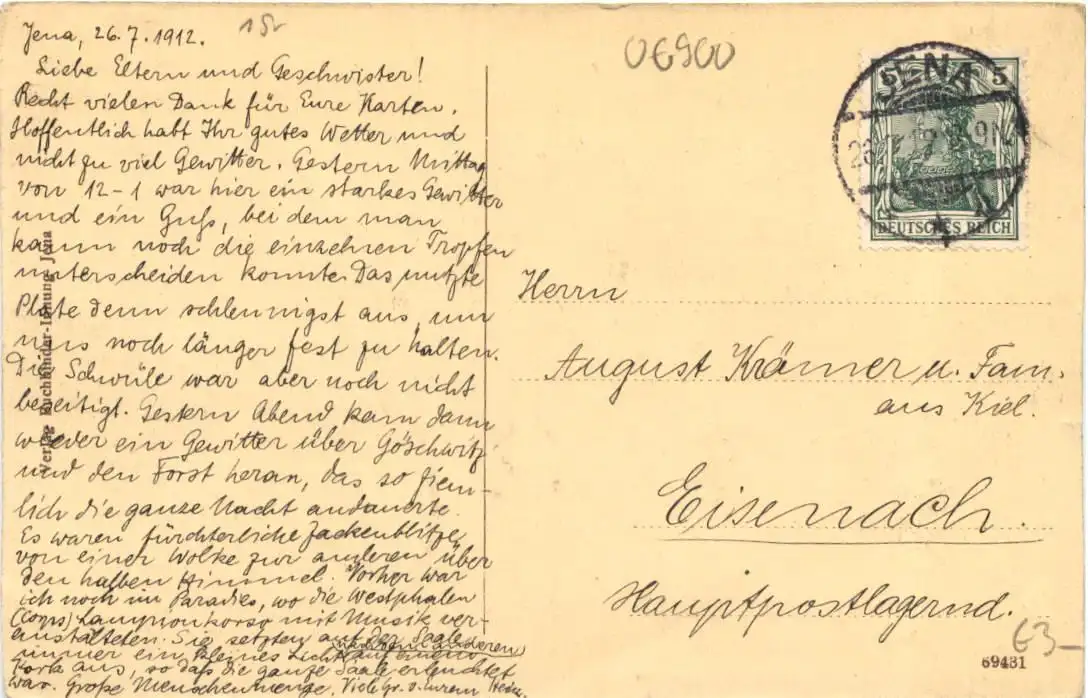 Jena, 26.7.1912.
Liebe Eltern und Geschwister!
Recht vielen Dank für Eure Karten.
Hoffentlich habt Ihr gutes Wetter und
nicht zu viel Gewitter. Gestern Mittag
von 12-1 war hier ein starkes Gewitter
und ein Guß, bei dem man
kaum noch die einzelnen Tropfen
unterscheiden konnte. Das nutzte
denn schleunigst aus, um
uns noch länger fest zu halten.
Die Schwüle war aber noch nicht
beseitigt. Gestern Abend kam dann
wieder ein Gewitter über Göschwitz
und den Forst heran, das so ziem-
lich die ganze Nacht andauerte.
Es waren fürchterliche Zackenblitze
von einer Wolke zur anderen über
den halben Himmel. Vorher war
ich noch im Paradies, wo die Westphalen
(Corps) Lampionkorso mit Musik ver-
anstalteten. Sie setzten auf der Saale
immer ein kleines Licht
aus, so daß die ganze Saale erleuchtet
war. Große Menschenmenge. Viele Gr. v. Eurem Hein.
Verlag Buchbinder-Innung Jena
06900
JENA
5
5
DEUTSCHES REICH
Herrn
August Krämer u. Fam.
aus Kiel.
Eisenach.
Hauptpostlagernd.
69431